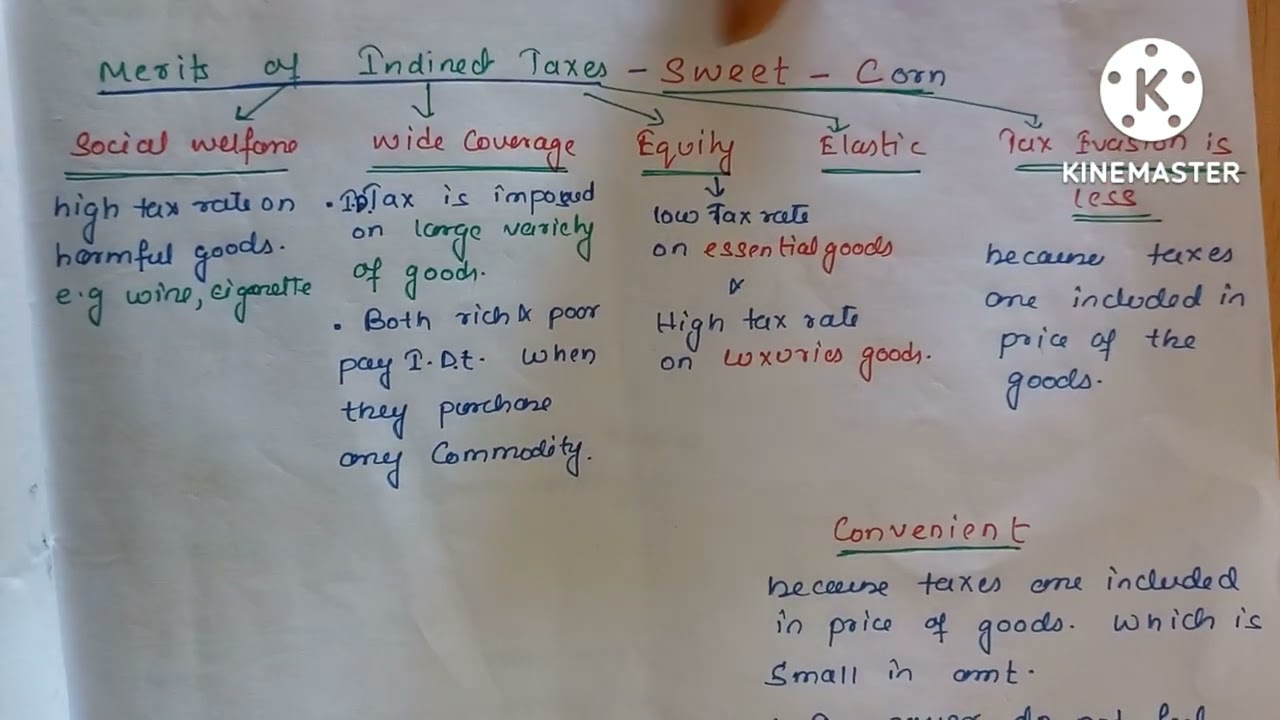 Merits of Indirect Taxes - Sweet - Corn
Social welfare
high tax rate on
harmful goods.
e.g wine, cigarette
Wide Coverage
• IDTax is imposed
on large variety
of goods.
• Both rich & poor
pay I.D.t. when
they purchase
any Commodity.
Equity
low Tax rate
on essential goods
&
High tax rate
on luxuries goods.
Elastic
Tax Evasion is
less
because taxes
are included in
price of the
goods.
Convenient
because taxes are included
in price of goods. which is
Small in amt.
K
KINEMASTER